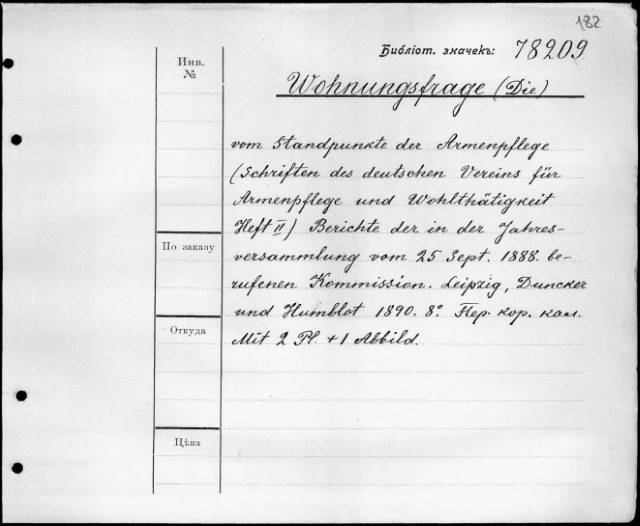 182
Библіот. значекъ: 78209
Инв.
№
Wohnungsfrage (Die)
vom Standpunkte der Armenpflege
(Schriften des deutschen Vereins für
Armenpflege und Wohlthätigkeit
Heft II) Berichte der in der Jahres-
versammlung vom 25 Sept. 1888. be-
rufenen Kommission. Leipzig, Duncker
und Humblot 1890. 8º. Пер. кор. кол.
Mit 2 Pl. + 1 Abbild.
По заказу
Откуда
Цѣна